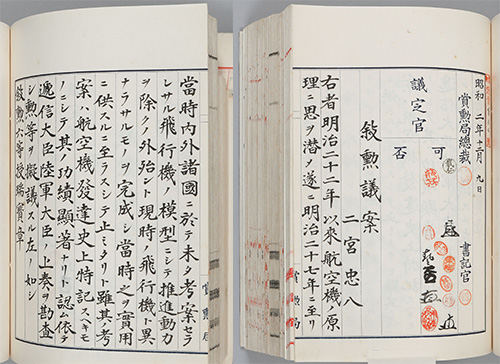 昭和 二年十二月 九日
賞勲局總裁
書記官
議定官
可
否
敍勲議案
二宮忠八
右者明治二十二年以来航空機ノ原
理ニ思ヲ潜メ遂ニ明治二十七年ニ至リ
賞勲局
當時内外諸國ニ於テ未タ考案セラ
レサル飛行機ノ模型ニシテ推進動力
ヲ除クノ外殆ント現時ノ飛行機ト異
ナラサルモノヲ完成シ當時之ヲ實用
ニ供スルニ至ラスシテ止ミタリト雖其ノ考
案ハ航空機發達史上特記スヘキモ
ノニシテ其ノ功績顯著ナリト認ム依テ
逓信大臣陸軍大臣ノ上奏ヲ勘査
シ勲等ヲ擬議スル左ノ如シ
敍勲六等授瑞寶章